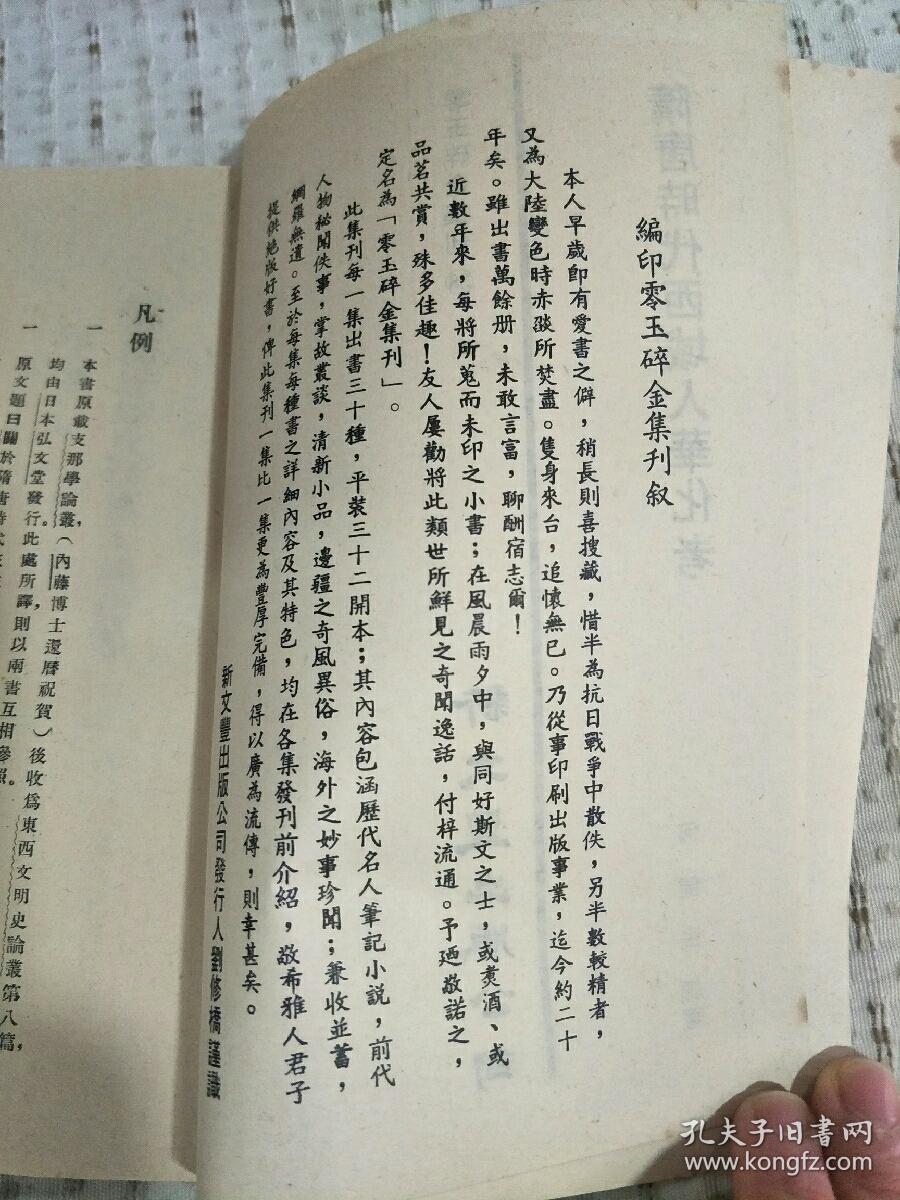 編印零玉碎金集刊叙
本人早歲即有愛書之僻，稍長則喜搜藏，惜半為抗日戰爭中散佚，另半數較精者，
又為大陸變色時赤燄所焚盡。隻身來台，追懷無已。乃從事印刷出版事業，迄今約二十
年矣。雖出書萬餘册，未敢言富，聊酬宿志爾！
近數年來，每將所蒐而未印之小書；在風晨雨夕中，與同好斯文之士，或煑酒、或
品茗共賞，殊多佳趣！友人屢勸將此類世所鮮見之奇聞逸話，付梓流通。予廼敬諾之，
定名為「零玉碎金集刊」。
此集刊每一集出書三十種，平装三十二開本；其內容包涵歷代名人筆記小説，前代
人物秘聞佚事，掌故叢談，清新小品，邊疆之奇風異俗，海外之妙事珍聞；兼收並蓄，
網羅無遺。至於每集每種書之詳細內容及其特色，均在各集發刊前介紹，敬希雅人君子
提供絕版好書，俾此集刊一集比一集更為豐厚完備，得以廣為流傳，則幸甚矣。
新文豐出版公司發行人劉修橋謹識
凡例
一 本書原載支那學論叢，（內藤博士還曆祝賀）後收爲東西文明史論叢第八篇，
均由日本弘文堂發行。此處所譯，則以兩書互相參照。
一 原文題曰關於隋唐時代
隋唐時代西域人華化考
孔夫子旧书网
www.kongfz.com